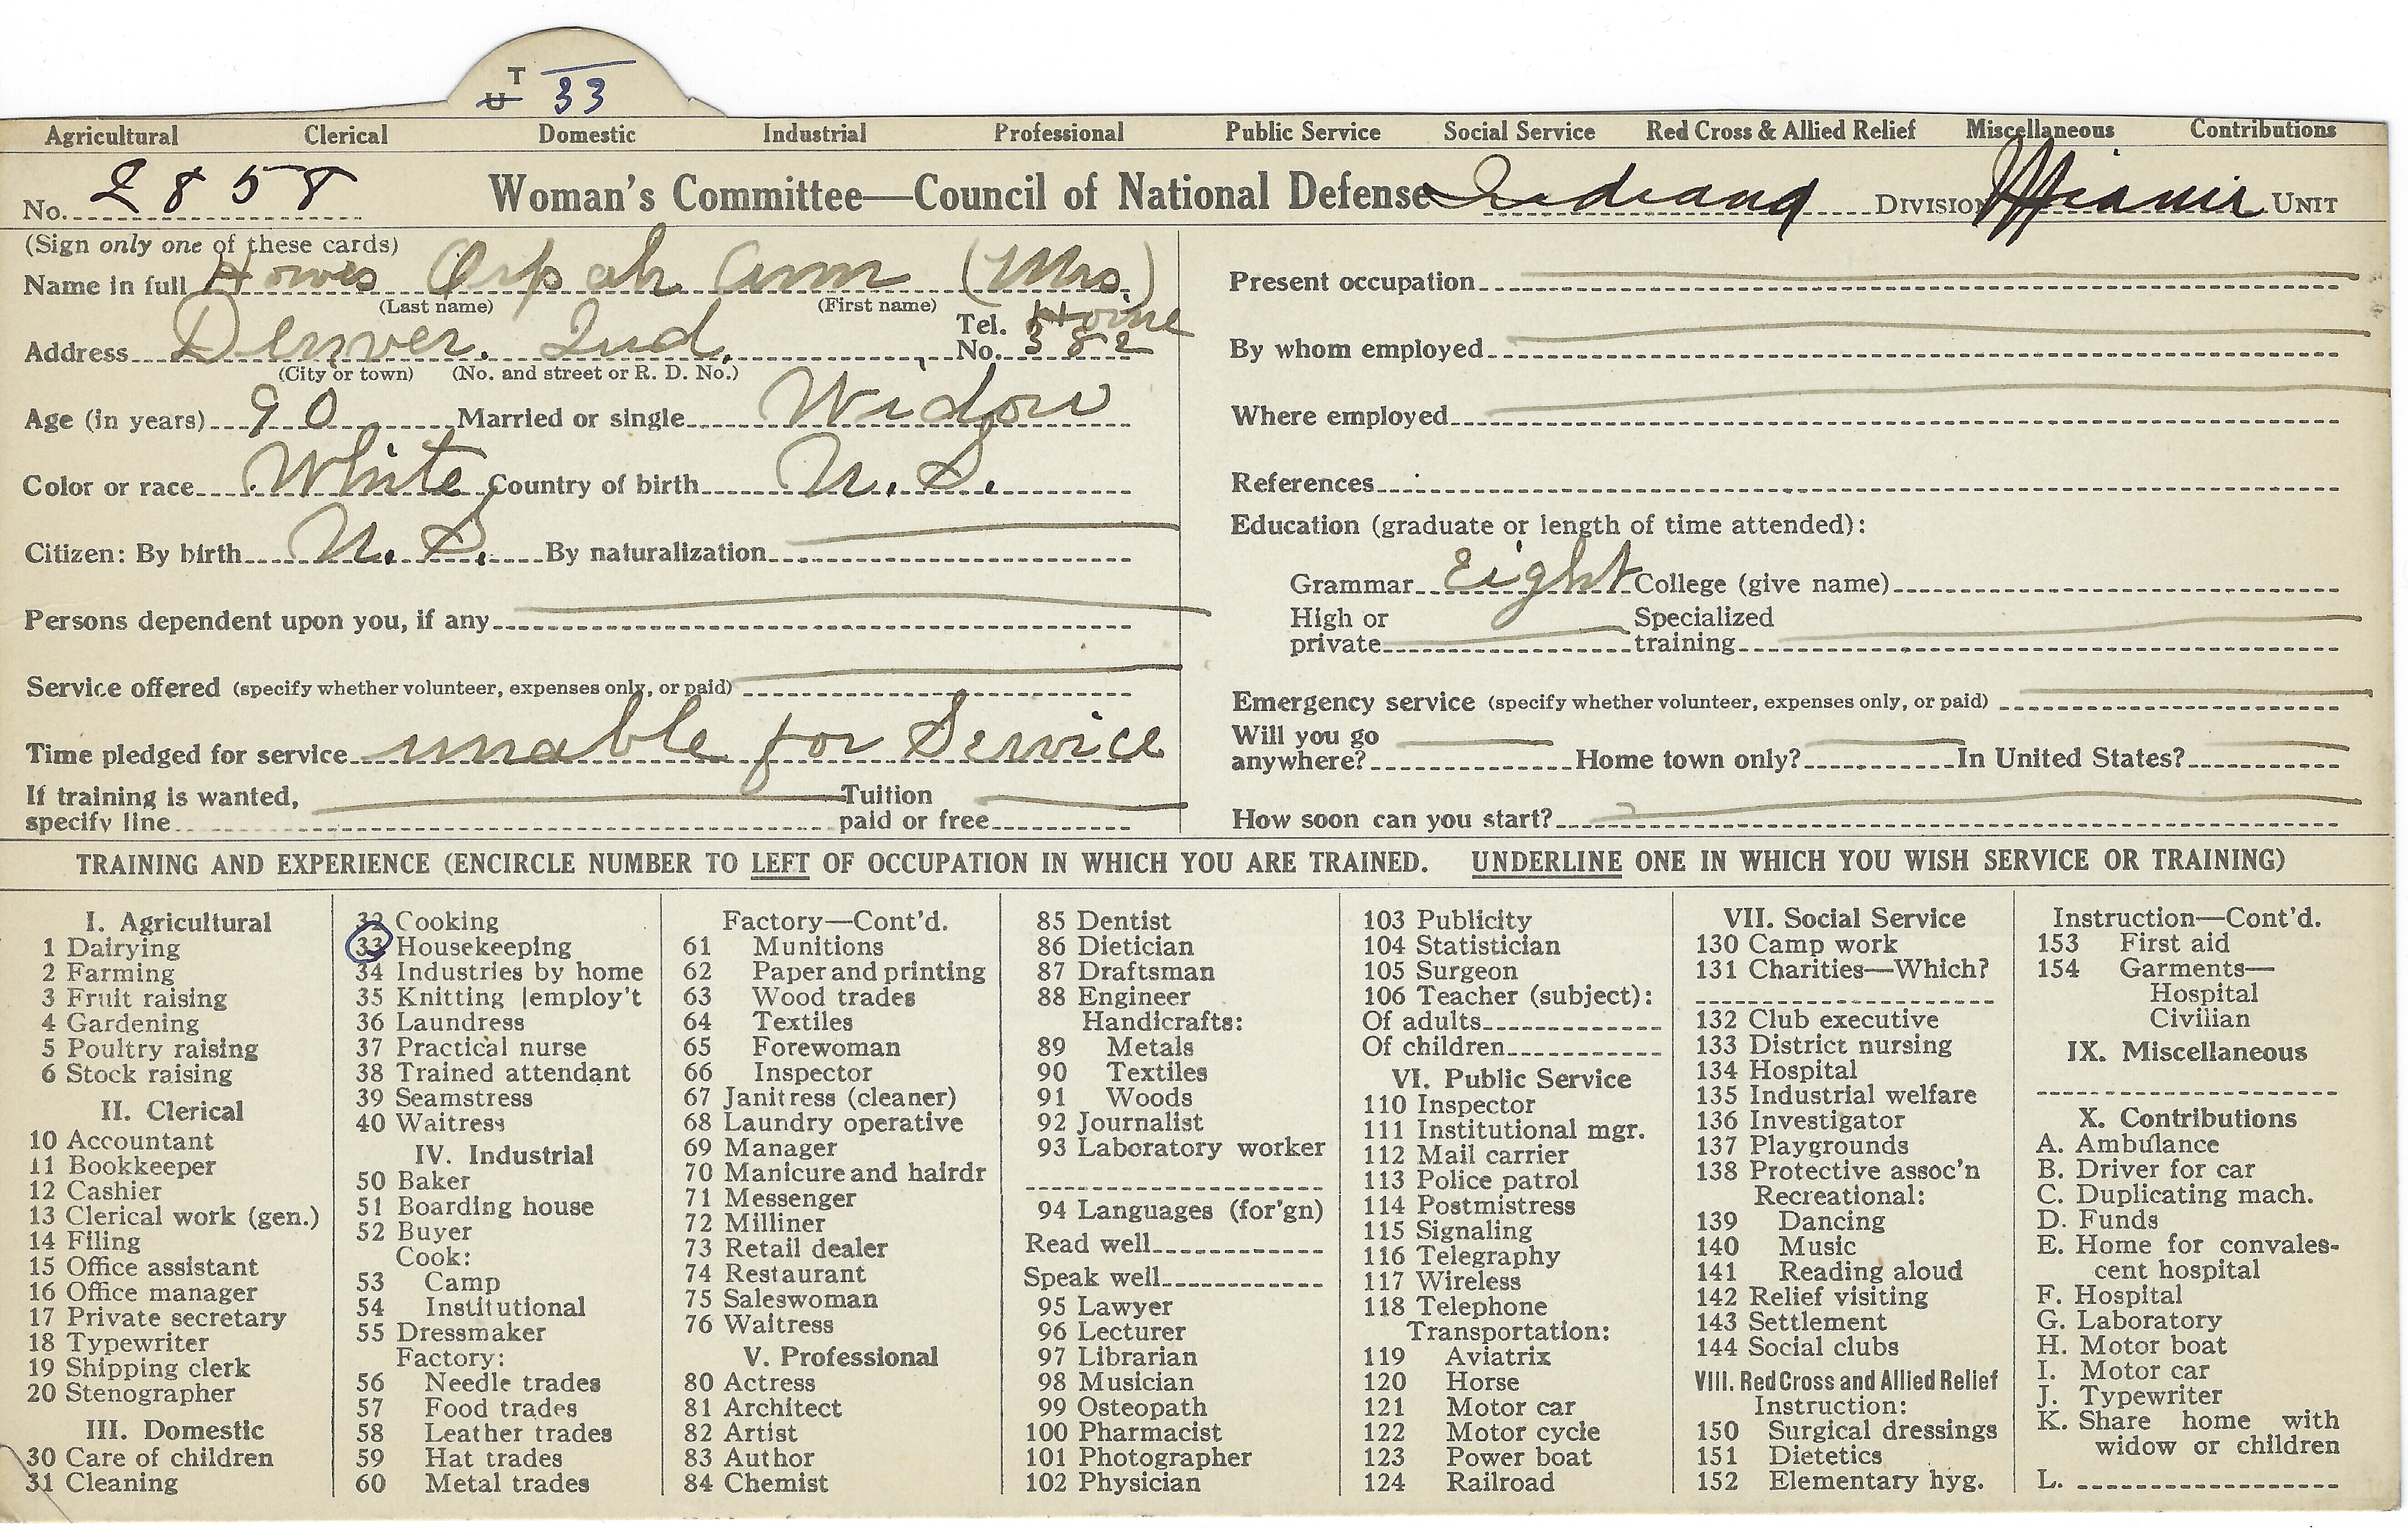 T
U 33
Agricultural Clerical Domestic Industrial Professional Public Service Social Service Red Cross & Allied Relief Miscellaneous Contributions
No. 2858 Woman's Committee—Council of National Defense Indiana DIVISION Miami UNIT
(Sign only one of these cards)
Name in full Howes Orpah Ann (Mrs.)
(Last name) (First name)
Address Denver. Ind. Tel. No. Home 382
(City or town) (No. and street or R. D. No.)
Age (in years) 90 Married or single Widow
Color or race White Country of birth U. S.
Citizen: By birth U. S. By naturalization
Persons dependent upon you, if any
Service offered (specify whether volunteer, expenses only, or paid)
Time pledged for service unable for Service
If training is wanted, specify line Tuition paid or free
Present occupation
By whom employed
Where employed
References
Education (graduate or length of time attended):
Grammar Eight College (give name)
High or private Specialized training
Emergency service (specify whether volunteer, expenses only, or paid)
Will you go anywhere? Home town only? In United States?
How soon can you start?
TRAINING AND EXPERIENCE (ENCIRCLE NUMBER TO LEFT OF OCCUPATION IN WHICH YOU ARE TRAINED. UNDERLINE ONE IN WHICH YOU WISH SERVICE OR TRAINING)
I. Agricultural
1 Dairying
2 Farming
3 Fruit raising
4 Gardening
5 Poultry raising
6 Stock raising
II. Clerical
10 Accountant
11 Bookkeeper
12 Cashier
13 Clerical work (gen.)
14 Filing
15 Office assistant
16 Office manager
17 Private secretary
18 Typewriter
19 Shipping clerk
20 Stenographer
III. Domestic
30 Care of children
31 Cleaning
32 Cooking
33 Housekeeping
34 Industries by home
35 Knitting |employ't
36 Laundress
37 Practical nurse
38 Trained attendant
39 Seamstress
40 Waitress
IV. Industrial
50 Baker
51 Boarding house
52 Buyer
Cook:
53 Camp
54 Institutional
55 Dressmaker
Factory:
56 Needle trades
57 Food trades
58 Leather trades
59 Hat trades
60 Metal trades
Factory—Cont'd.
61 Munitions
62 Paper and printing
63 Wood trades
64 Textiles
65 Forewoman
66 Inspector
67 Janitress (cleaner)
68 Laundry operative
69 Manager
70 Manicure and hairdr
71 Messenger
72 Milliner
73 Retail dealer
74 Restaurant
75 Saleswoman
76 Waitress
V. Professional
80 Actress
81 Architect
82 Artist
83 Author
84 Chemist
85 Dentist
86 Dietician
87 Draftsman
88 Engineer
Handicrafts:
89 Metals
90 Textiles
91 Woods
92 Journalist
93 Laboratory worker
94 Languages (for'gn)
Read well
Speak well
95 Lawyer
96 Lecturer
97 Librarian
98 Musician
99 Osteopath
100 Pharmacist
101 Photographer
102 Physician
103 Publicity
104 Statistician
105 Surgeon
106 Teacher (subject):
Of adults
Of children
VI. Public Service
110 Inspector
111 Institutional mgr.
112 Mail carrier
113 Police patrol
114 Postmistress
115 Signaling
116 Telegraphy
117 Wireless
118 Telephone
Transportation:
119 Aviatrix
120 Horse
121 Motor car
122 Motor cycle
123 Power boat
124 Railroad
VII. Social Service
130 Camp work
131 Charities—Which?
132 Club executive
133 District nursing
134 Hospital
135 Industrial welfare
136 Investigator
137 Playgrounds
138 Protective assoc'n
Recreational:
139 Dancing
140 Music
141 Reading aloud
142 Relief visiting
143 Settlement
144 Social clubs
VIII. Red Cross and Allied Relief
Instruction:
150 Surgical dressings
151 Dietetics
152 Elementary hyg.
Instruction—Cont'd.
153 First aid
154 Garments—
Hospital
Civilian
IX. Miscellaneous
X. Contributions
A. Ambulance
B. Driver for car
C. Duplicating mach.
D. Funds
E. Home for convales-
cent hospital
F. Hospital
G. Laboratory
H. Motor boat
I. Motor car
J. Typewriter
K. Share home with
widow or children
L.